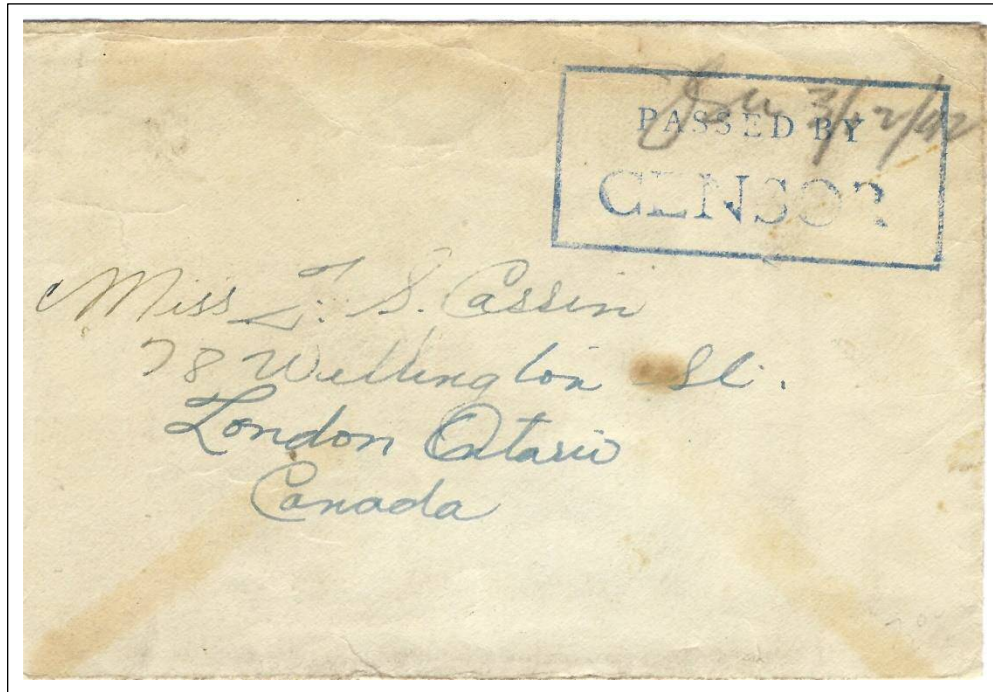 3/12/42
PASSED BY
CENSOR
Miss S. Cassin
78 Wellington St.
London Ontario
Canada